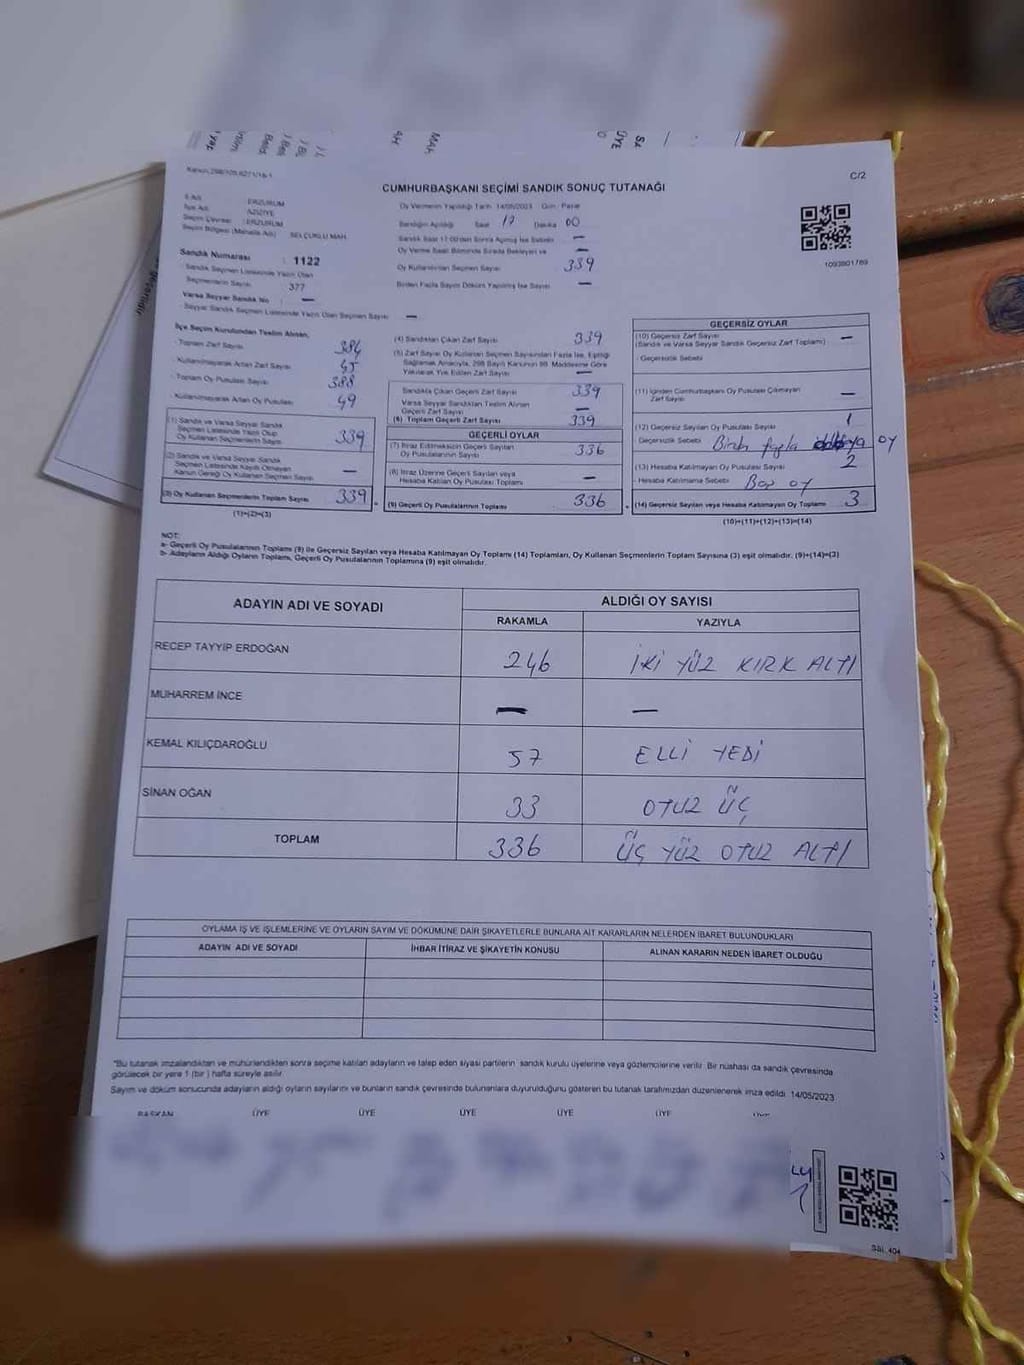 C/2
CUMHURBAŞKANI SEÇİMİ SANDIK SONUÇ TUTANAĞI
İl Adı : ERZURUM
İlçe Adı : AZİZİYE
Seçim Çevresi : ERZURUM
Seçim Bölgesi (Mahalle Adı) SELÇUKLU MAH.
Oy Vermenin Yapıldığı Tarih 14/05/2023 Gün : Pazar
Sandığın Açıldığı Saat 17 Dakika 00
Sandık Saat 17:00'den Sonra Açılmış İse Sebebi —
Oy Verme Saati Bitiminde Sırada Bekleyen ve —
Oy Kullandırılan Seçmen Sayısı 339
Birden Fazla Sayım Döküm Yapılmış İse Sayısı —
1093801789
Sandık Numarası : 1122
- Sandık Seçmen Listesinde Yazılı Olan
Seçmenlerin Sayısı 377
Varsa Seyyar Sandık No : —
- Seyyar Sandık Seçmen Listesinde Yazılı Olan Seçmen Sayısı —
İlçe Seçim Kurulundan Teslim Alınan,
- Toplam Zarf Sayısı 384
- Kullanılmayarak Artan Zarf Sayısı 45
- Toplam Oy Pusulası Sayısı 388
- Kullanılmayarak Artan Oy Pusulası 49
(1) Sandık ve Varsa Seyyar Sandık
Seçmen Listesinde Yazılı Olup
Oy Kullanan Seçmenlerin Sayısı 339
(2) Sandık ve Varsa Seyyar Sandık
Seçmen Listesinde Kayıtlı Olmayan
Kanun Gereği Oy Kullanan Seçmen Sayısı —
(3) Oy Kullanan Seçmenlerin Toplam Sayısı 339
(1)+(2)=(3)
(4) Sandıktan Çıkan Zarf Sayısı 339
(5) Zarf Sayısı Oy Kullanan Seçmen Sayısından Fazla İse, Eşitliği
Sağlamak Amacıyla, 298 Sayılı Kanunun 98. Maddesine Göre
Yakılarak Yok Edilen Zarf Sayısı —
Sandıkta Çıkan Geçerli Zarf Sayısı 339
Varsa Seyyar Sandıktan Teslim Alınan
Geçerli Zarf Sayısı —
(6) Toplam Geçerli Zarf Sayısı 339
GEÇERLİ OYLAR
(7) İtiraz Edilmeksizin Geçerli Sayılan
Oy Pusulalarının Sayısı 336
(8) İtiraz Üzerine Geçerli Sayılan veya
Hesaba Katılan Oy Pusulası Toplamı —
(9) Geçerli Oy Pusulalarının Toplamı 336
GEÇERSİZ OYLAR
(10) Geçersiz Zarf Sayısı
(Sandık ve Varsa Seyyar Sandık Geçersiz Zarf Toplamı) —
- Geçersizlik Sebebi
(11) İçinden Cumhurbaşkanı Oy Pusulası Çıkmayan
Zarf Sayısı —
(12) Geçersiz Sayılan Oy Pusulası Sayısı 1
Geçersizlik Sebebi fazla oy
(13) Hesaba Katılmayan Oy Pusulası Sayısı 2
- Hesaba Katılmama Sebebi Boş oy
(14) Geçersiz Sayılan veya Hesaba Katılmayan Oy Toplamı 3
(10)+(11)+(12)+(13)=(14)
NOT:
a- Geçerli Oy Pusulalarının Toplamı (9) ile Geçersiz Sayılan veya Hesaba Katılmayan Oy Toplamı (14) Toplamları, Oy Kullanan Seçmenlerin Toplam Sayısına (3) eşit olmalıdır. (9)+(14)=(3)
b- Adayların Aldığı Oyların Toplamı, Geçerli Oy Pusulalarının Toplamına (9) eşit olmalıdır.
ADAYIN ADI VE SOYADI ALDIĞI OY SAYISI
RAKAMLA YAZIYLA
RECEP TAYYİP ERDOĞAN 246 İKİ YÜZ KIRK ALTI
MUHARREM İNCE — —
KEMAL KILIÇDAROĞLU 57 ELLİ YEDİ
SİNAN OĞAN 33 OTUZ ÜÇ
TOPLAM 336 ÜÇ YÜZ OTUZ ALTI
OYLAMA İŞ VE İŞLEMLERİNE VE OYLARIN SAYIM VE DÖKÜMÜNE DAİR ŞİKAYETLERLE BUNLARA AİT KARARLARIN NELERDEN İBARET BULUNDUKLARI
ADAYIN ADI VE SOYADI İHBAR İTİRAZ VE ŞİKAYETİN KONUSU ALINAN KARARIN NEDEN İBARET OLDUĞU
*Bu tutanak imzalandıktan ve mühürlendikten sonra seçime katılan adayların ve talep eden siyasi partilerin sandık kurulu üyelerine veya gözlemcilerine verilir. Bir nüshası da sandık çevresinde
görülecek bir yere 1 (bir) hafta süreyle asılır.
Sayım ve döküm sonucunda adayların aldığı oyların sayılarını ve bunların sandık çevresinde bulunanlara duyurulduğunu gösteren bu tutanak tarafımızdan düzenlenerek imza edildi. 14/05/2023
BAŞKAN ÜYE ÜYE ÜYE ÜYE ÜYE